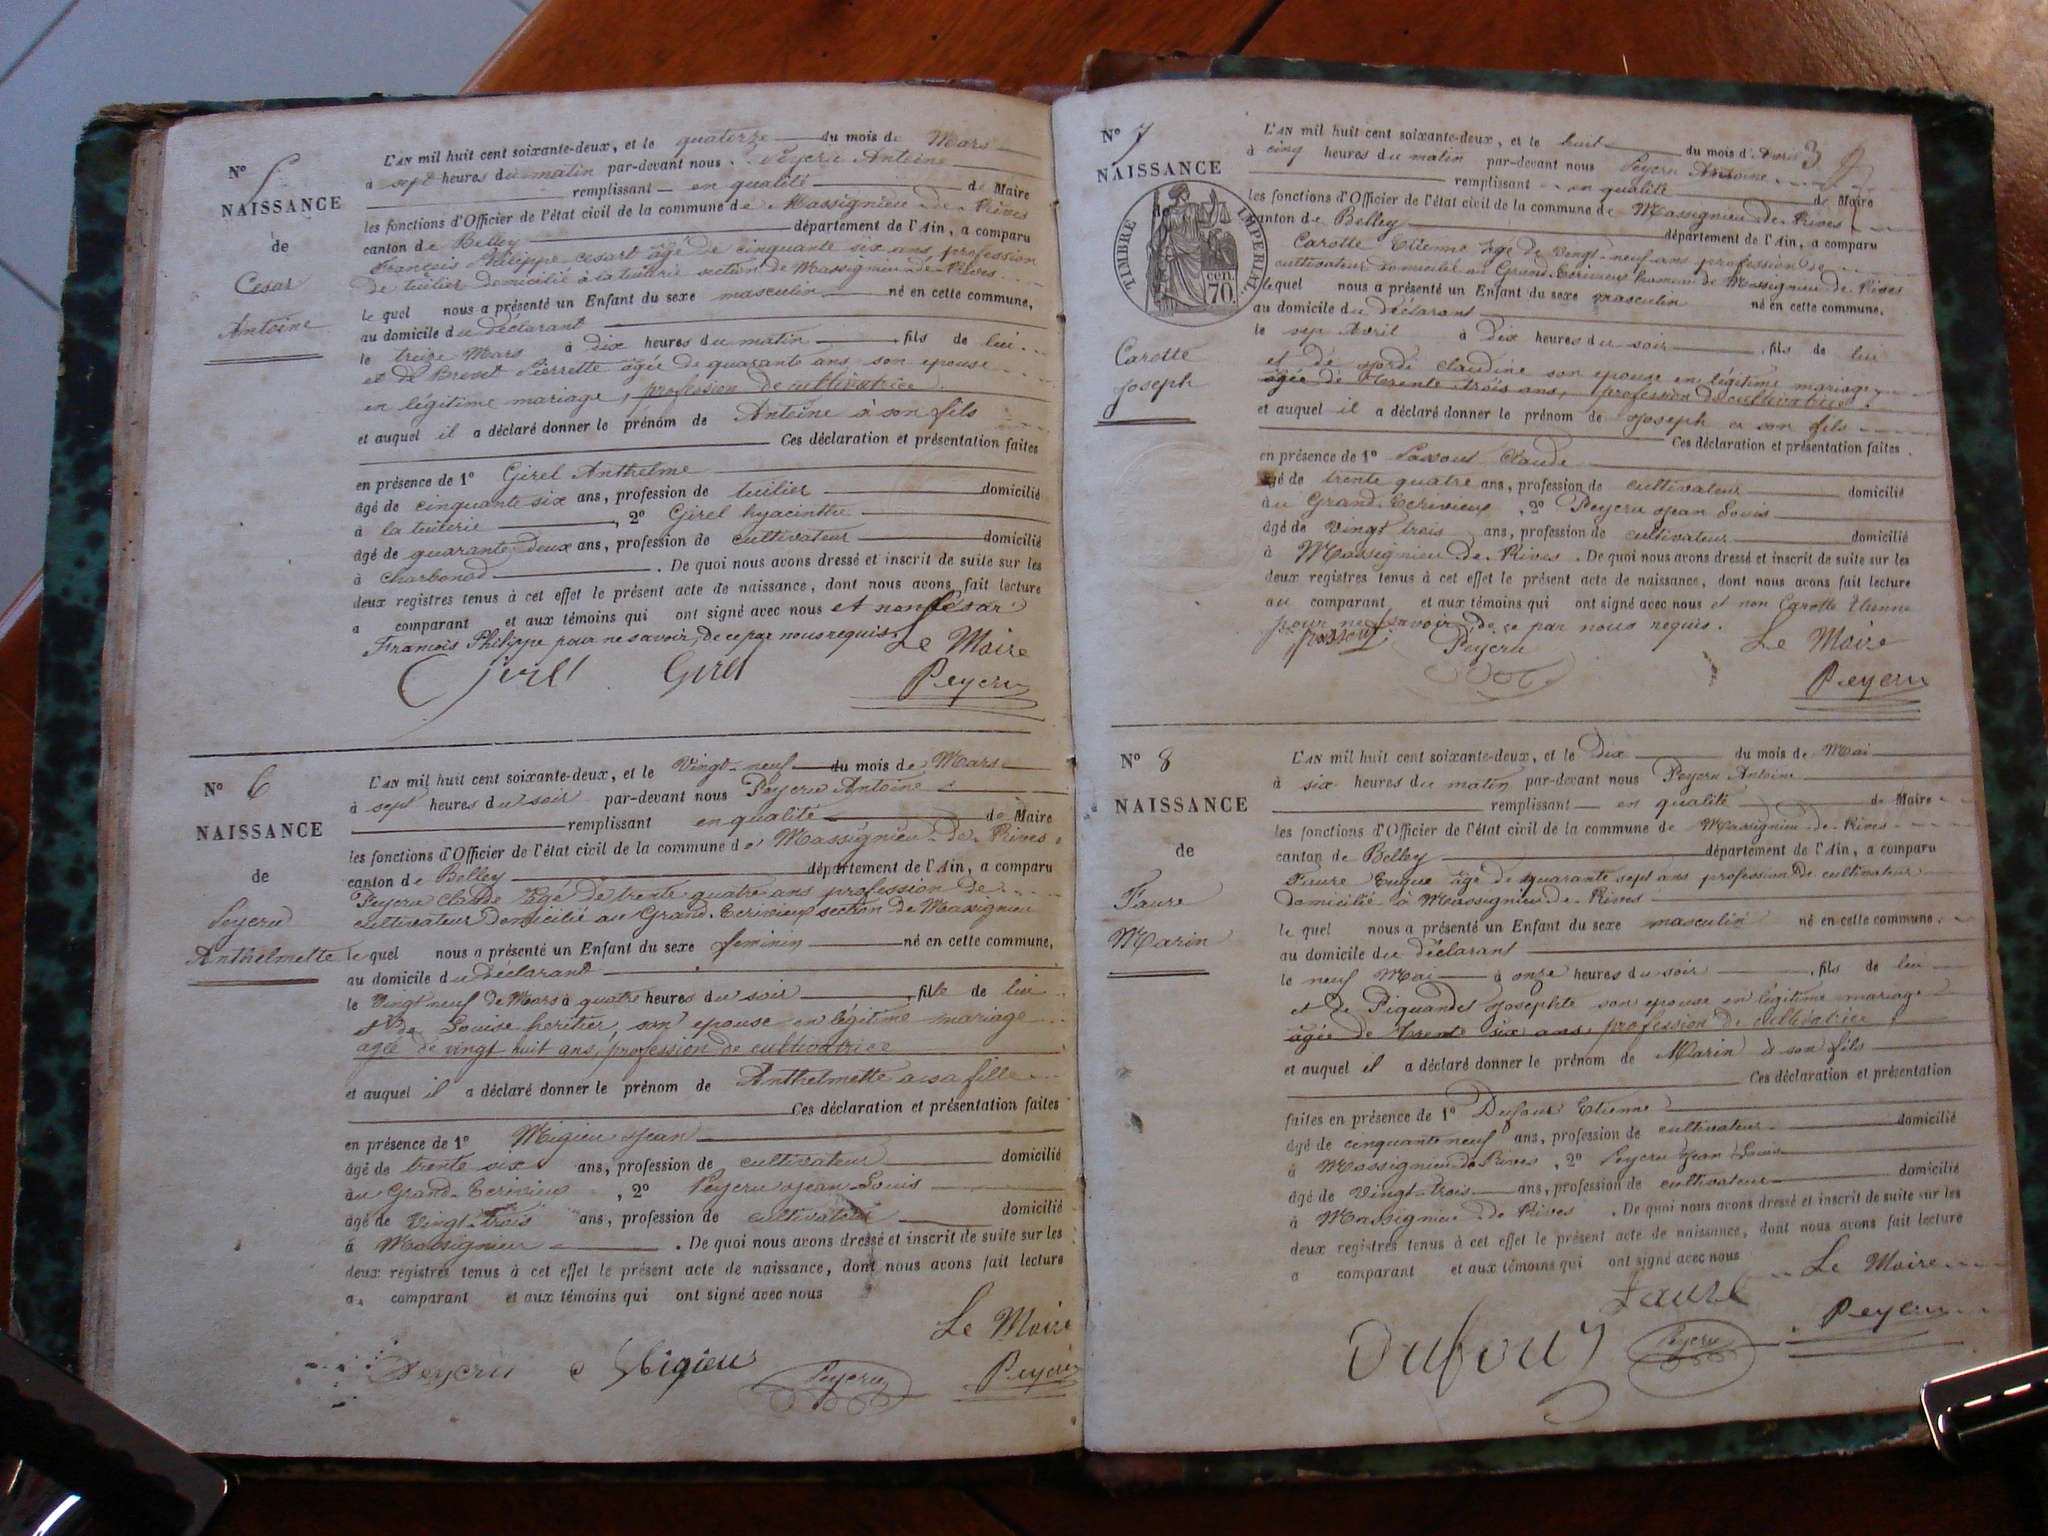 N° 5
NAISSANCE
de
Cesar
Antoine
L'AN mil huit cent soixante-deux, et le quatorze du mois de Mars
à sept heures du matin par-devant nous Peycru Antoine
remplissant en qualité de Maire
les fonctions d'Officier de l'état civil de la commune de Massignieu-de-Rives
canton de Belley département de l'Ain, a comparu
François Philippe cesart âgé de cinquante six ans profession
de tuilier domicilié à la tuilerie section de Massignieu-de-Rives
le quel nous a présenté un Enfant du sexe masculin né en cette commune,
au domicile du déclarant
le treize Mars à dix heures du matin fils de lui
et de Pierrette âgée de quarante ans son epouse
en légitime mariage, profession de cultivatrice
et auquel il a déclaré donner le prénom de Antoine à son fils
Ces déclaration et présentation faites
en présence de 1° Girel Anthelme
âgé de cinquante six ans, profession de tuilier domicilié
à la tuilerie, 2° Girel hyacinthe
âgé de quarante deux ans, profession de cultivateur domicilié
à charbonod. De quoi nous avons dressé et inscrit de suite sur les
deux registres tenus à cet effet le présent acte de naissance, dont nous avons fait lecture
a comparant et aux témoins qui ont signé avec nous et non César
François Philippe pour ne savoir, de ce par nous requis.
Le Maire
Girel Girel Peycru
N° 6
NAISSANCE
de
Peycru
Anthelmette
L'AN mil huit cent soixante-deux, et le Vingt-neuf du mois de Mars
à sept heures du soir par-devant nous Peycru Antoine
remplissant en qualité de Maire
les fonctions d'Officier de l'état civil de la commune de Massignieu-de-Rives
canton de Belley département de l'Ain, a comparu
Peycru Claude âgé de trente quatre ans profession de
cultivateur domicilié au Grand-Ecrivieux section de Massignieu
le quel nous a présenté un Enfant du sexe feminin né en cette commune,
au domicile du déclarant
le Vingt neuf de Mars à quatre heures du soir fille de lui
et de Louise heritier, son epouse en légitime mariage
agée de vingt huit ans, profession de cultivatrice
et auquel il a déclaré donner le prénom de Anthelmette a sa fille
Ces déclaration et présentation faites
en présence de 1° Migieu Jean
âgé de trente six ans, profession de cultivateur domicilié
au Grand-Ecrivieux, 2° Peycru Jean-Louis
âgé de Vingt-trois ans, profession de cultivateur domicilié
à Massignieu. De quoi nous avons dressé et inscrit de suite sur les
deux registres tenus à cet effet le présent acte de naissance, dont nous avons fait lecture
a comparant et aux témoins qui ont signé avec nous
Le Maire
Peycru Migieu Peycru Peycru
N° 7
NAISSANCE
de
TIMBRE IMPERIAL
cen.
70.
Carotte
Joseph
L'AN mil huit cent soixante-deux, et le huit du mois d'Avril 3
à cinq heures du matin par-devant nous Peycru Antoine
remplissant en qualité de Maire
les fonctions d'Officier de l'état civil de la commune de Massignieu-de-Rives
canton de Belley département de l'Ain, a comparu
Carotte Etienne âgé de Vingt-neuf ans profession de
cultivateur domicilié au Grand-Ecrivieux hameau de Massignieu de Rives
lequel nous a présenté un Enfant du sexe masculin né en cette commune,
au domicile du déclarant
le sept Avril à dix heures du soir fils de lui
et de claudine son epouse en légitime mariage
âgée de trente-trois ans, profession de cultivatrice
et auquel il a déclaré donner le prénom de Joseph a son fils
Ces déclaration et présentation faites
en présence de 1° Passout Claude
âgé de trente quatre ans, profession de cultivateur domicilié
au Grand-Ecrivieux, 2° Peycru Jean Louis
âgé de Vingt trois ans, profession de cultivateur domicilié
à Massignieu de Rives. De quoi nous avons dressé et inscrit de suite sur les
deux registres tenus à cet effet le présent acte de naissance, dont nous avons fait lecture
au comparant et aux témoins qui ont signé avec nous et non Carotte Etienne
pour ne savoir de ce par nous requis.
Passout Peycru Le Maire
Peycru
N° 8
NAISSANCE
de
Faure
Marin
L'AN mil huit cent soixante-deux, et le Dix du mois de Mai
à six heures du matin par-devant nous Peycru Antoine
remplissant en qualité de Maire
les fonctions d'Officier de l'état civil de la commune de Massignieu-de-Rives
canton de Belley département de l'Ain, a comparu
Faure âgé de quarante sept ans profession de cultivateur
domicilié à Massignieu-de-Rives
le quel nous a présenté un Enfant du sexe masculin né en cette commune,
au domicile du déclarant
le neuf Mai à onze heures du soir fils de lui
et de Piquandet Josephte son epouse en légitime mariage
âgée de trente six ans, profession de cultivatrice
et auquel il a déclaré donner le prénom de Marin à son fils
Ces déclaration et présentation
faites en présence de 1° Dufour Etienne
âgé de cinquante neuf ans, profession de cultivateur domicilié
à Massignieu de Rives, 2° Peycru Jean Louis
âgé de Vingt-trois ans, profession de cultivateur domicilié
à Massignieu de Rives. De quoi nous avons dressé et inscrit de suite sur les
deux registres tenus à cet effet le présent acte de naissance, dont nous avons fait lecture
a comparant et aux témoins qui ont signé avec nous
Faure Le Maire
Dufour Peycru Peycru